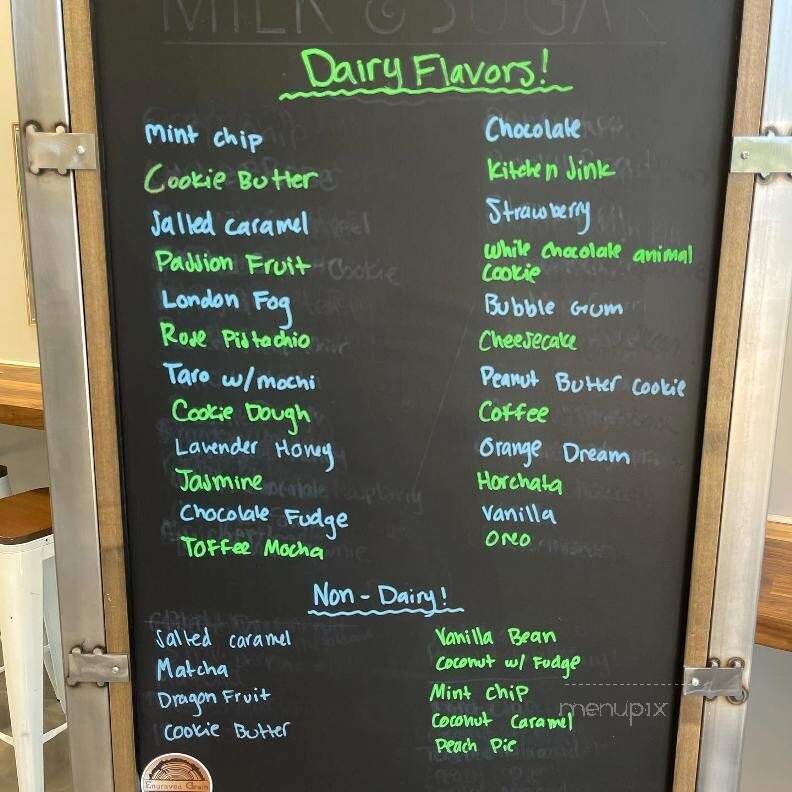 MILK & SUGAR
Dairy Flavors!
Mint chip
Cookie Butter
Salted caramel
Passion Fruit
London Fog
Rose Pistachio
Taro w/mochi
Cookie Dough
Lavender Honey
Jasmine
Chocolate Fudge
Toffee Mocha
Chocolate
Kitchen Sink
Strawberry
White chocolate animal
cookie
Bubble Gum
Cheesecake
Peanut Butter cookie
Coffee
Orange Dream
Horchata
Vanilla
Oreo
Non-Dairy!
Salted caramel
Matcha
Dragon Fruit
Cookie Butter
Vanilla Bean
Coconut w/ Fudge
Mint Chip
Coconut Caramel
Peach Pie
menupix
Engraved Grain